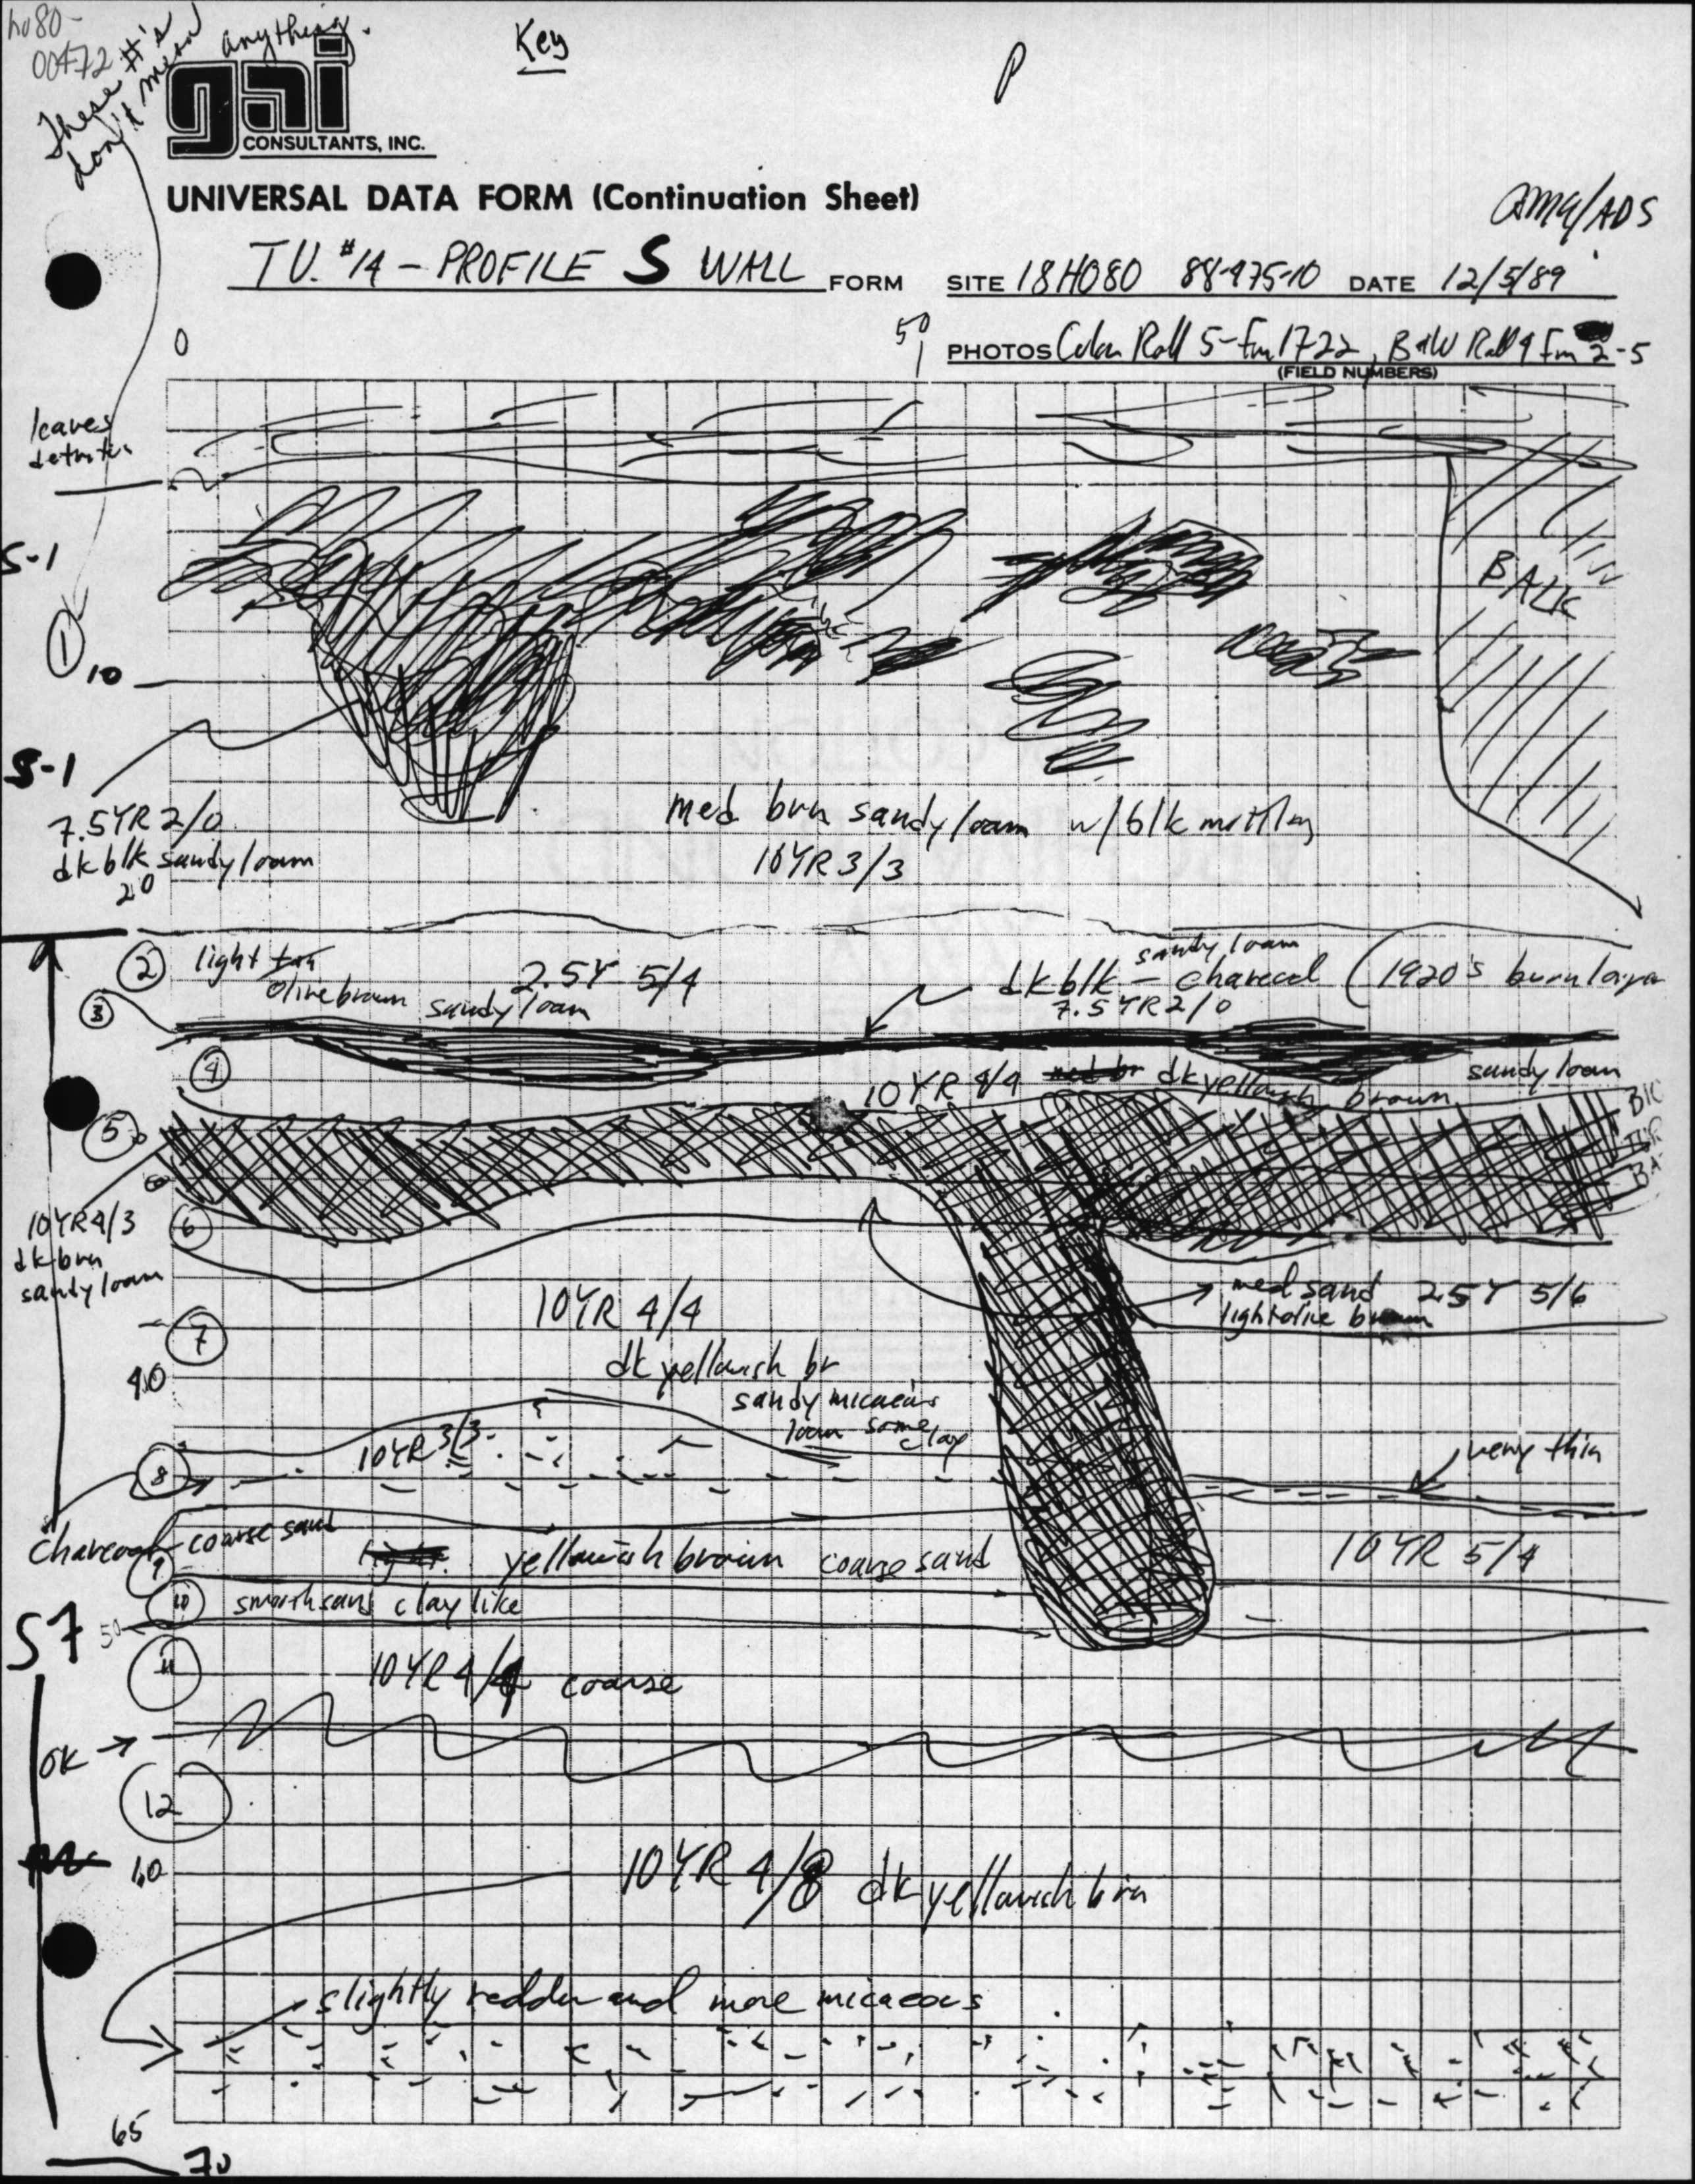 ho80-
00472
These #'s
don't mean
anything.
Key
P
gai
CONSULTANTS, INC.
UNIVERSAL DATA FORM (Continuation Sheet)
AMG/ADS
T.U. #14 - PROFILE S WALL FORM SITE 18HO80 88-475-10 DATE 12/5/89
0
50
PHOTOS Color Roll 5-Fm 17-22, B&W Roll 4 Fm 2-5
(FIELD NUMBERS)
leaves
S-1
BALK
1
10
S-1
7.5YR 2/0
dk blk sandy loam
20
Med brn sandy loam w/ blk mottling
10YR 3/3
2
light tan
olive brown sandy loam
2.5Y 5/4
sandy loam
dk blk - charcoal (1920's burn layer
7.5YR 2/0
3
4
10YR 4/4 med br dk yellowish brown sandy loam
5
10YR 4/3
dk brn
sandy loam
6
med sand 2.5Y 5/6
light olive brown
10YR 4/4
7
dk yellowish br
sandy micaceous
loam some clay
40
10YR 3/3
8
very thin
charcoal
coarse sand
9
yellowish brown coarse sand
10YR 5/4
10
smooth sand clay like
S7
50
11
10YR 4/4 coarse
OK →
12
60
10YR 4/8 dk yellowish brn
slightly redder and more micaceous
65
70